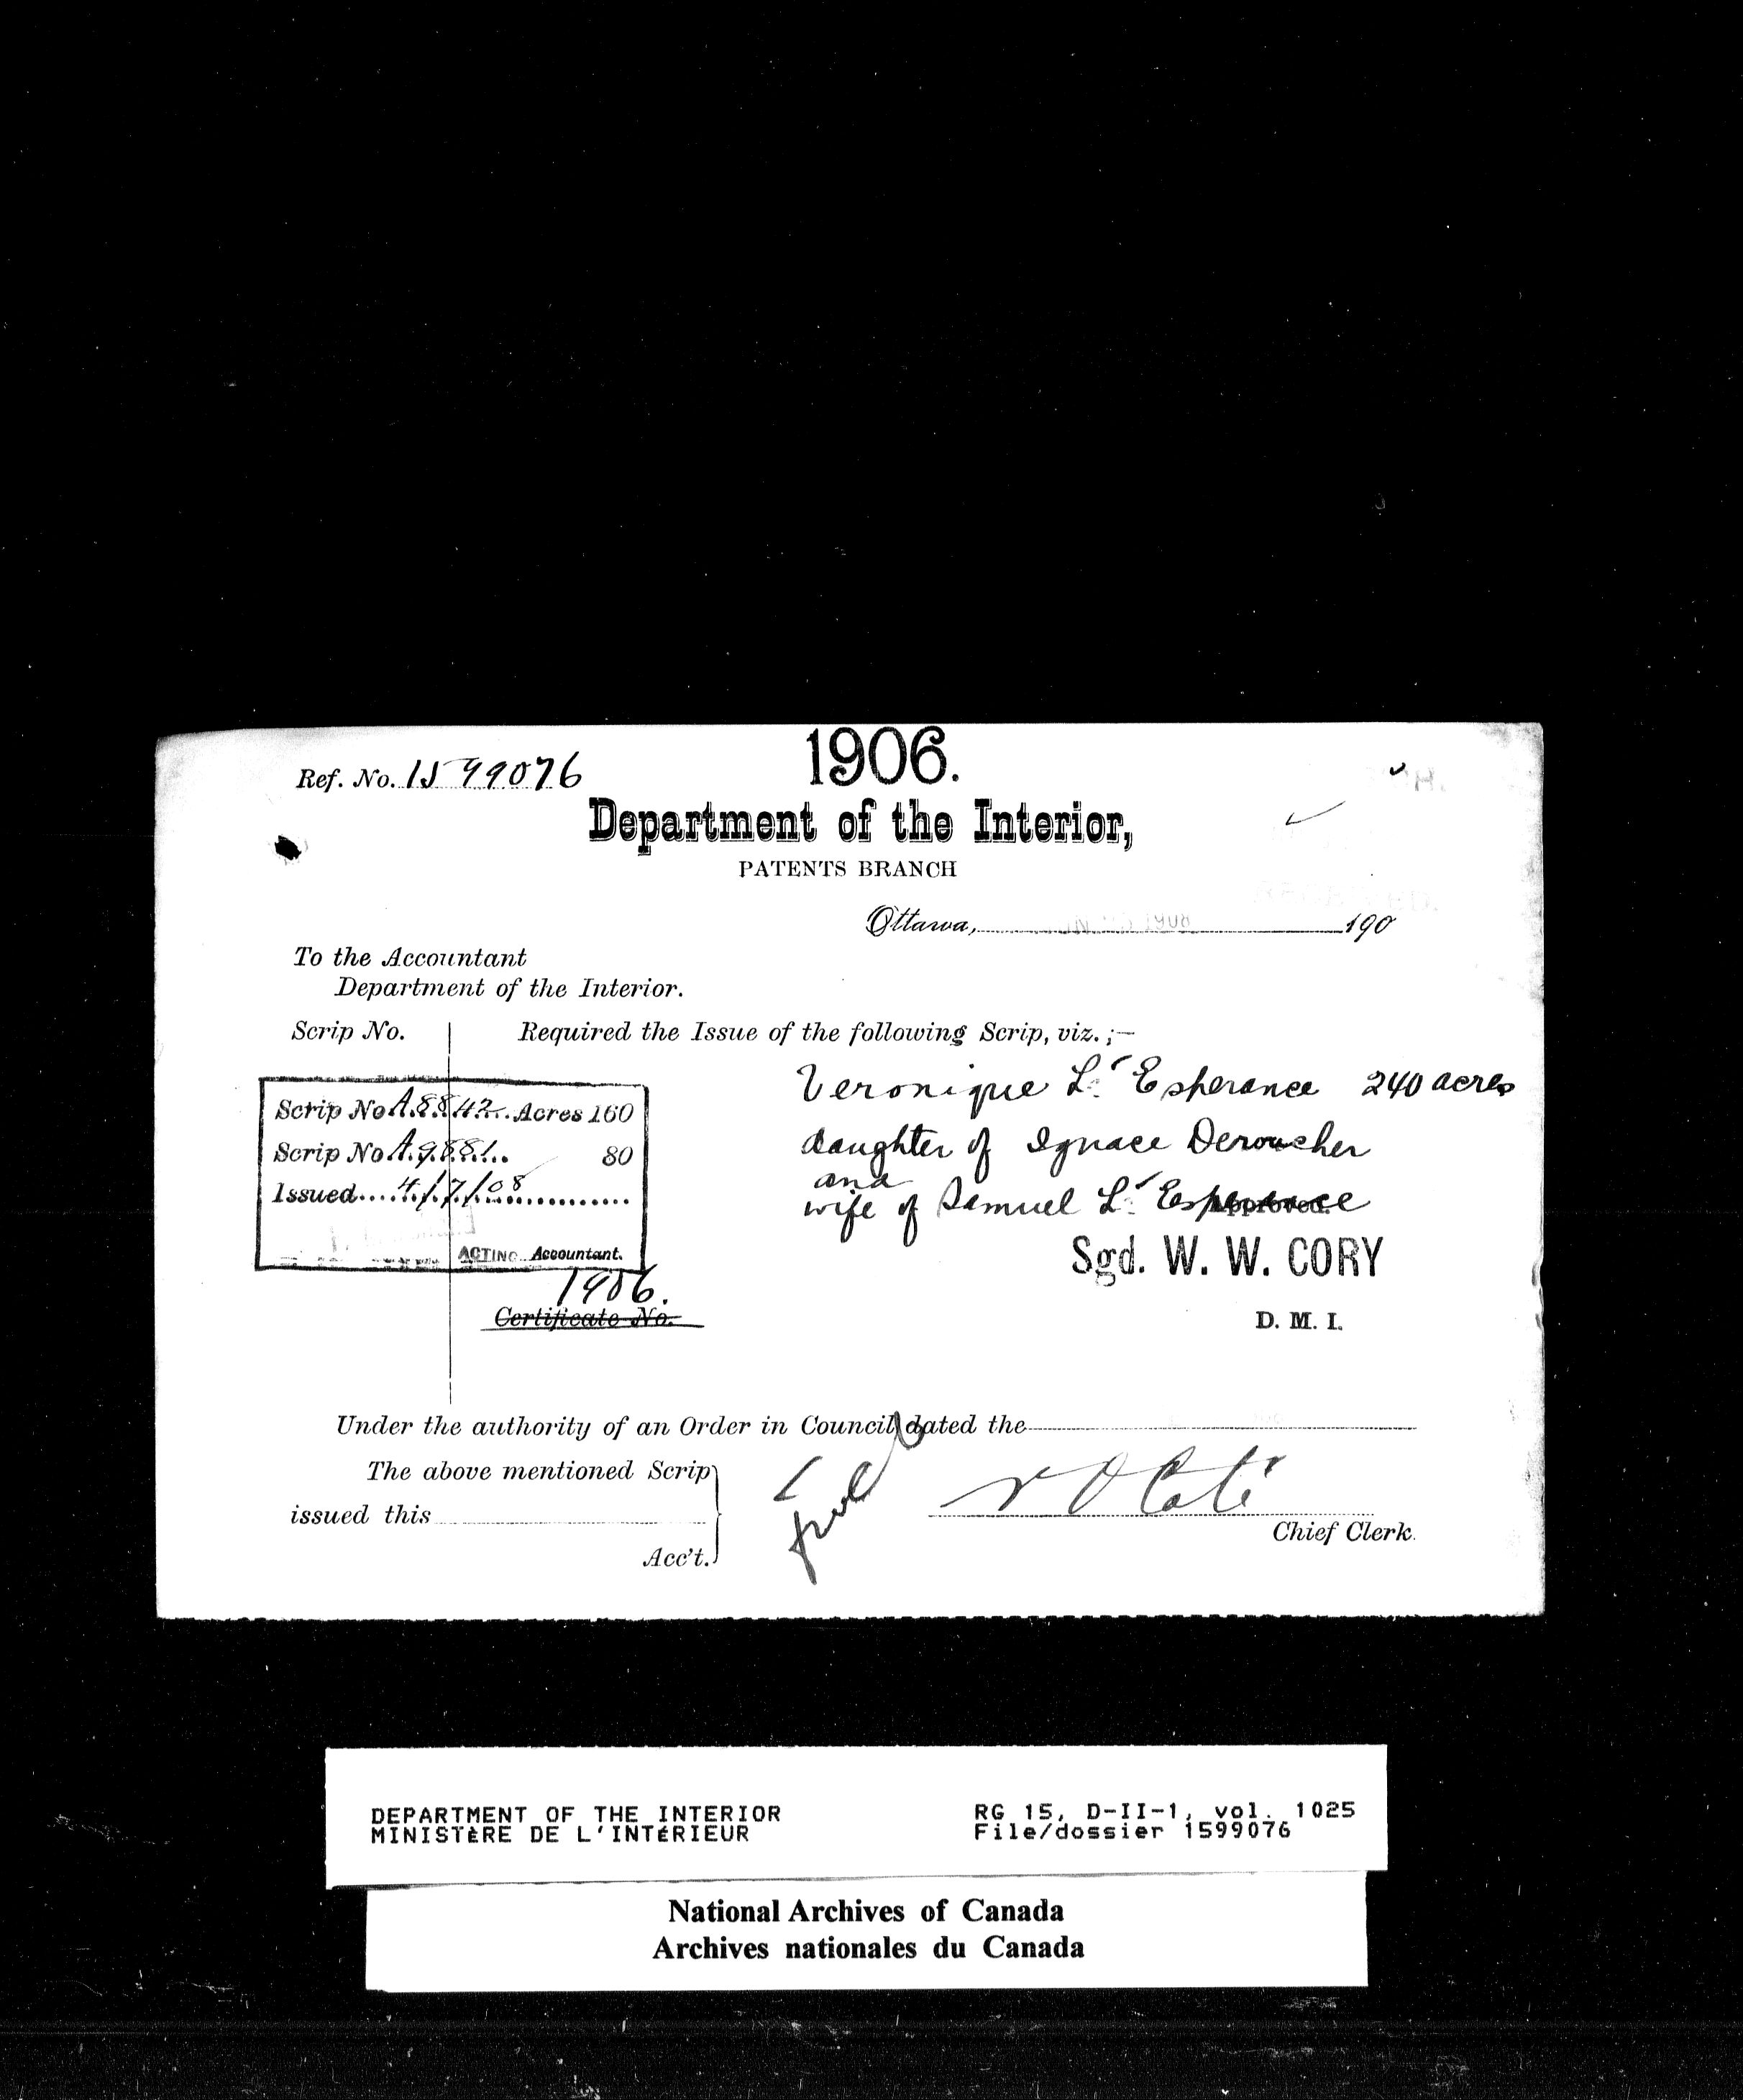 1906.
Ref. No. 1599076
Department of the Interior,
PATENTS BRANCH
Ottawa, 190
To the Accountant
Department of the Interior.
Scrip No. Required the Issue of the following Scrip, viz.;—
Veronique L'Esperance 240 acres
Scrip No A.8842 Acres 160
daughter of Ignace Deroucher
Scrip No A.9881 80
and
wife of Samuel L'Esperance
Approved.
Issued 4/7/08
Sgd. W. W. CORY
ACTING Accountant.
1906.
Certificate No.
D. M. I.
Under the authority of an Order in Council dated the
The above mentioned Scrip
issued this
Chief Clerk.
Acc't.
DEPARTMENT OF THE INTERIOR
MINISTÈRE DE L'INTÉRIEUR
RG 15, D-II-1, vol. 1025
File/dossier 1599076
National Archives of Canada
Archives nationales du Canada